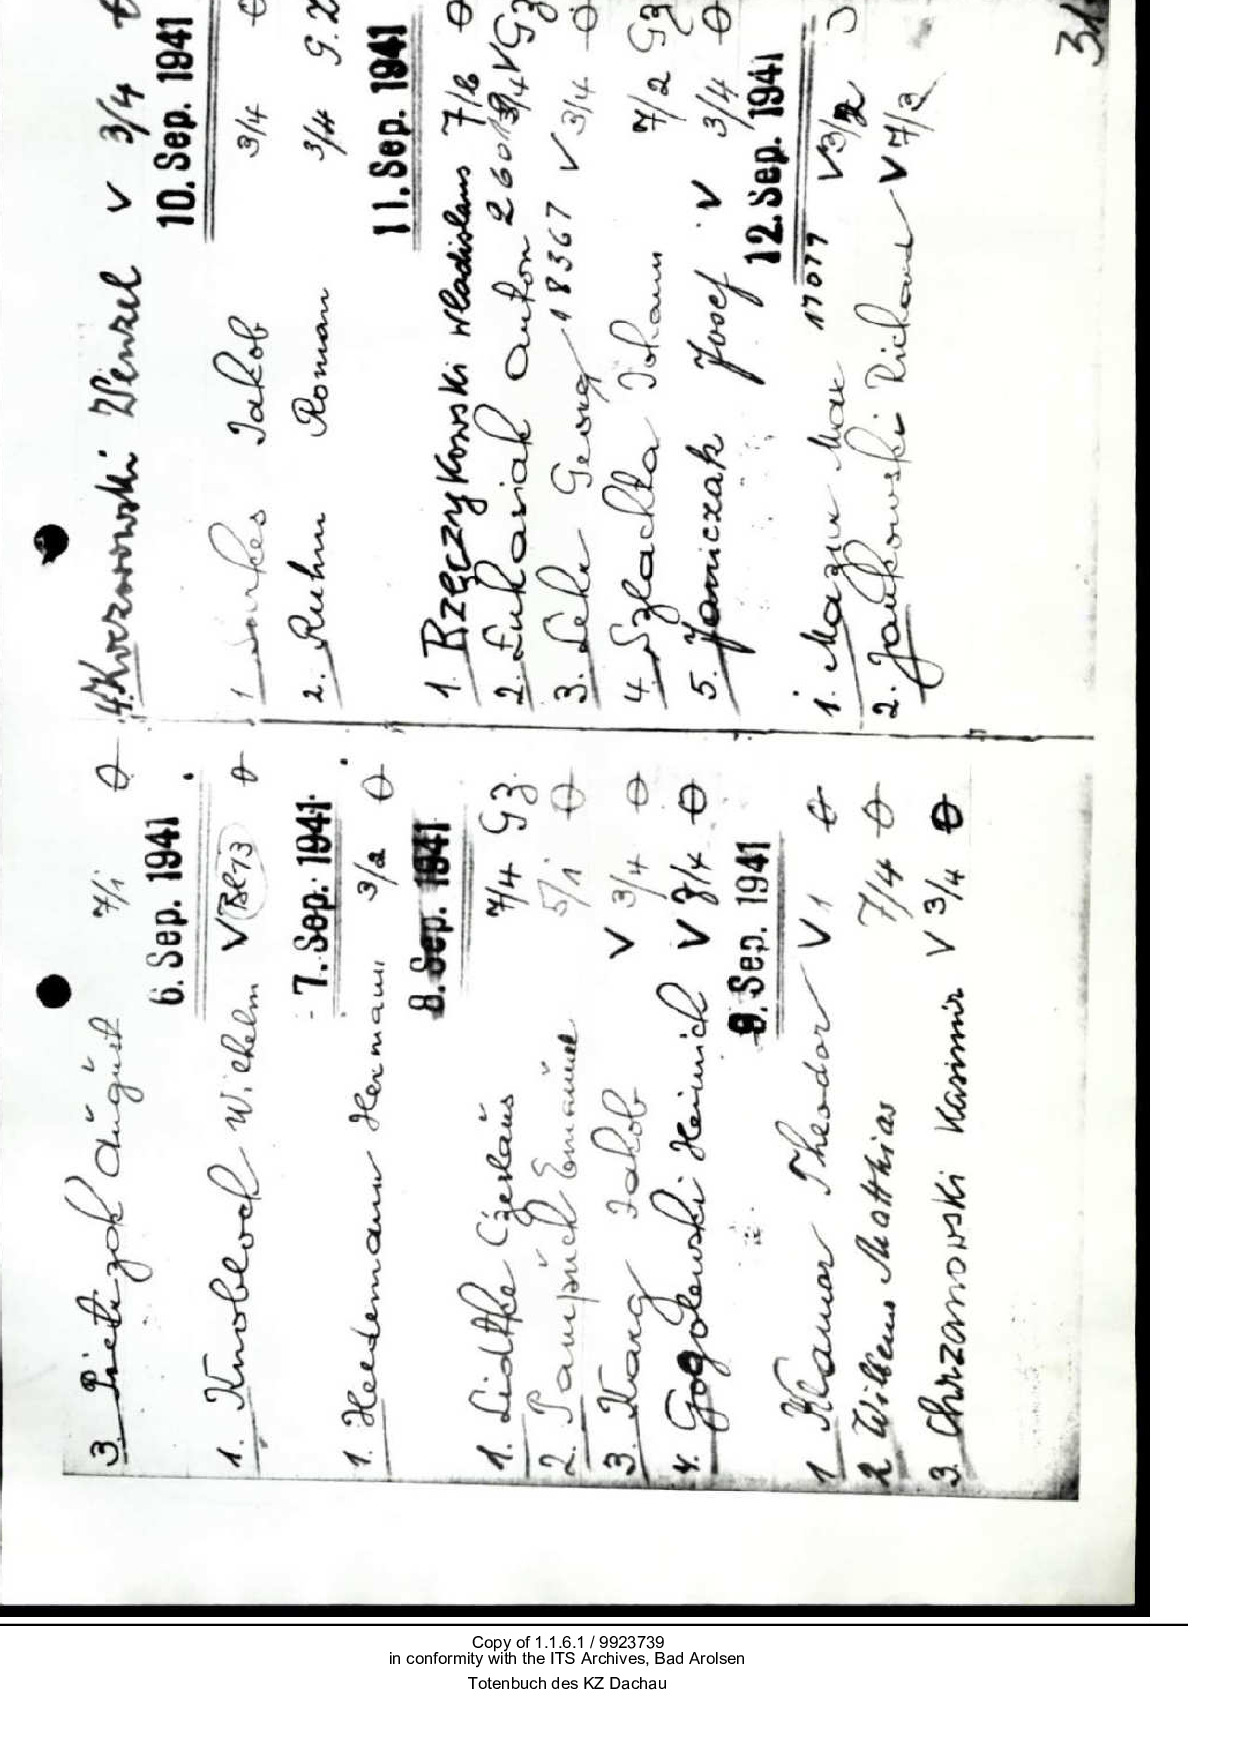 3. Pietrzok August 7/1 Θ
6. Sep. 1941
1. Knobloch Wilhelm V Bl 13 Θ
7. Sep. 1941
1. Heidemann Hermann 3/2 Θ
8. Sep. 1941
1. Lidtke Czeslaus 7/4 Gz.
2. Pampuch Emanuel 5/1 Θ
3. Karg Jakob V 3/4 Θ
4. Gogolewski Heinrich V 7/4 Θ
9. Sep. 1941
1 Klamor Theodor V 1 Θ
2 Willems Matthias 7/4 Θ
3. Chrzanowski Kasimir V 3/4 Θ
4. Korzorowski Wenzel V 3/4 Θ
10. Sep. 1941
1 Jakob 3/4 Θ
2. Ruhm Roman 3/4 G.Z
11. Sep. 1941
1. Rzęczykowski Wladislaus 7/2 Θ
2. Lukasiak Anton 3/4 V Gz
3. Leha Georg 18367 V 3/4 Θ
4. Szlachta Johann 7/2 Gz
5. Janiczak Josef V 3/4 Θ
12. Sep. 1941
1. Mazur Max 17077 V 3/2
2. Jankowski Richard V 7/3
31
Copy of 1.1.6.1 / 9923739
in conformity with the ITS Archives, Bad Arolsen
Totenbuch des KZ Dachau